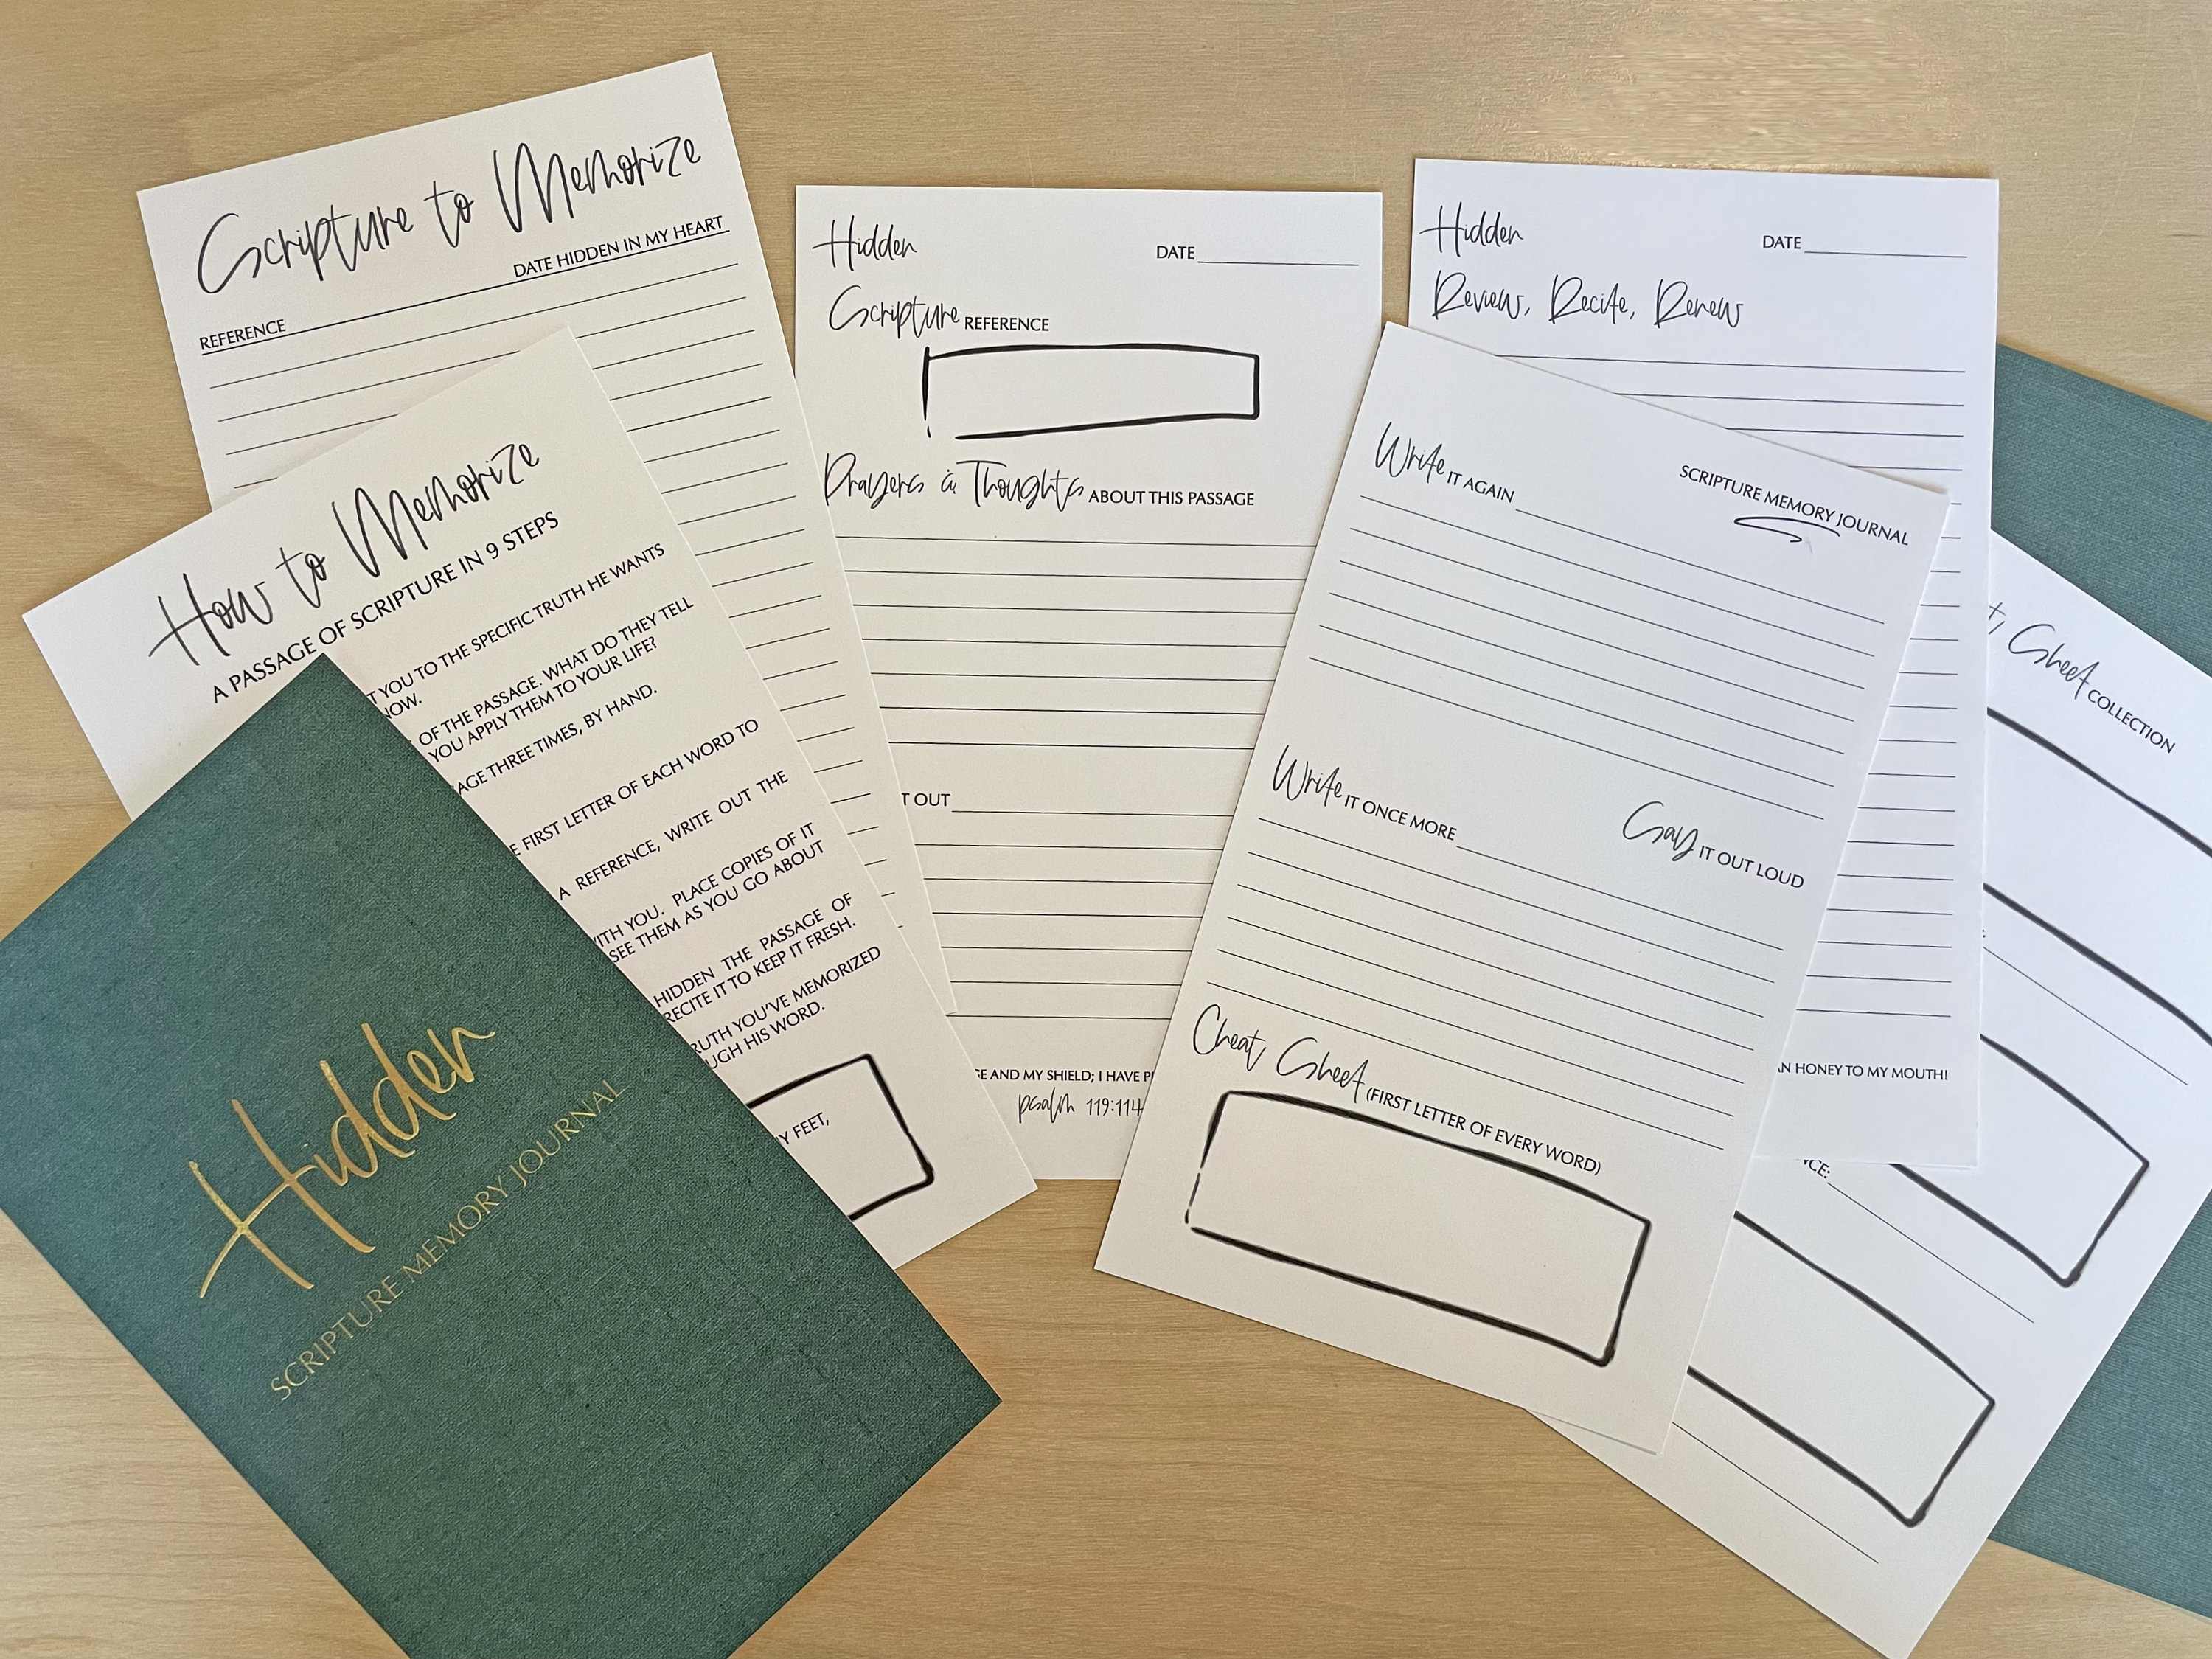 Scripture to Memorize
DATE HIDDEN IN MY HEART
REFERENCE
How to Memorize
A PASSAGE OF SCRIPTURE IN 9 STEPS
YOU TO THE SPECIFIC TRUTH HE WANTS
OF THE PASSAGE. WHAT DO THEY TELL
YOU APPLY THEM TO YOUR LIFE?
THREE TIMES, BY HAND.
FIRST LETTER OF EACH WORD TO
A REFERENCE, WRITE OUT THE
YOU. PLACE COPIES OF IT
SEE THEM AS YOU GO ABOUT
HIDDEN THE PASSAGE OF
RECITE IT TO KEEP IT FRESH.
YOU'VE MEMORIZED
HIS WORD.
FEET,
Hidden
SCRIPTURE MEMORY JOURNAL
Hidden
DATE
Scripture REFERENCE
Prayers & Thoughts ABOUT THIS PASSAGE
OUT
AND MY SHIELD; I HAVE
psalm 119:114
Hidden
DATE
Review, Recite, Renew
HONEY TO MY MOUTH!
SCRIPTURE MEMORY JOURNAL
Write IT AGAIN
Write IT ONCE MORE
Say IT OUT LOUD
Cheat Sheet (FIRST LETTER OF EVERY WORD)
Sheet COLLECTION